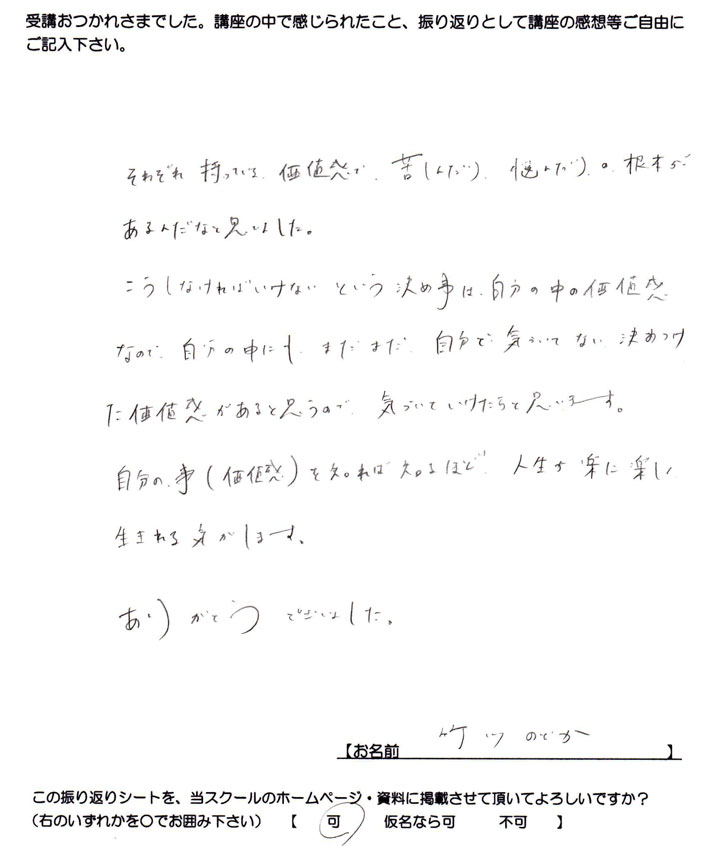 受講おつかれさまでした。講座の中で感じられたこと、振り返りとして講座の感想等ご自由に
ご記入下さい。
それぞれ 持っている 価値感で、苦しんだり、悩んだり、の 根本が
あるんだなと思いました。
こうしなければいけない という 決め事は、自分の中の価値感
なので、自分の中にも、まだまだ、自分で 気づいてない 決めつけ
た価値感があると思うので、気づいていけたらと思います。
自分の事(価値感)を知れば知るほど、人生が楽に楽しく
生きれる気がします。
ありがとうございました。
【お名前 竹川 のどか 】
この振り返りシートを、当スクールのホームページ・資料に掲載させて頂いてよろしいですか？
（右のいずれかを○でお囲み下さい） 【 可 仮名なら可 不可 】